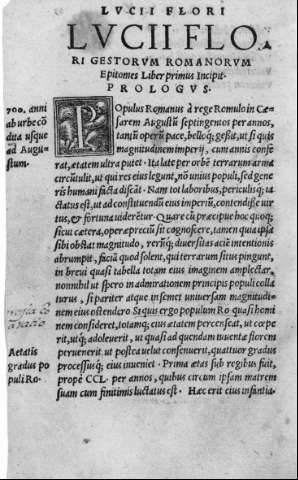 LVCII FLORI
LVCII FLO
RI GESTORVM ROMANORVM
Epitomes Liber primus Incipit.
PROLOGVS.
700. anni
ab urbe cō
dita usque
ad Augu
stum.
POpulus Romanus à rege Romulo in Cæ
sarem Augustū septingentos per annos,
tantū operū pace, belloq; gessit, ut si quis
magnitudinem imperij, cum annis confe
rat, ætatem ultra putet. Ita late per orbē terrarum arma
circūtulit, ut qui res eius legunt, nō unius populi, sed gene
ris humani facta discāt. Nam tot laboribus, periculisq; ia
ctatus est, ut ad constituendū eius imperiū, contendisse uir
tus, & fortuna uideretur. Quare cū præcipue hoc quoq;
sicut cætera, operæpreciū sit cognoscere, tamen quia ipsa
sibi obstat magnitudo, rerūq; diuersitas aciē intentionis
abrumpit, faciā quod solent, qui terrarum situs pingunt,
in breui quasi tabella totam eius imaginem amplectar,
nonnihil ut spero in admirationem principis populi colla
turus, si pariter atque insemel uniuersam magnitudi
nem eius ostendero Siquis ergo populum Ro. quasi homi
nem consideret, totamq; eius ætatem percenseat, ut cœpe
rit, utq; adoleuerit, ut quasi ad quendam iuuentæ florem
peruenerit ut postea uelut consenuerit, quattuor gradus
processusq; eius inueniet. Prima ætas sub regibus fuit,
propè CCL. per annos, quibus circum ipsam matrem
suam cum finitimis luctatus est. Hæc erit eius infantia.
Aetatis
gradus po
puli Ro.